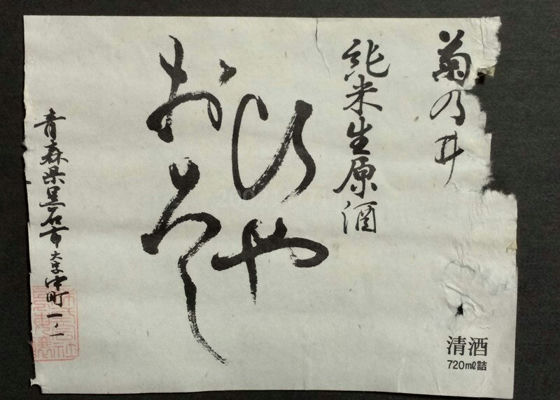 菊乃井
純米生原酒
ひや
おろし
青森県黒石市大字中町一ノ一
清酒
720mℓ詰